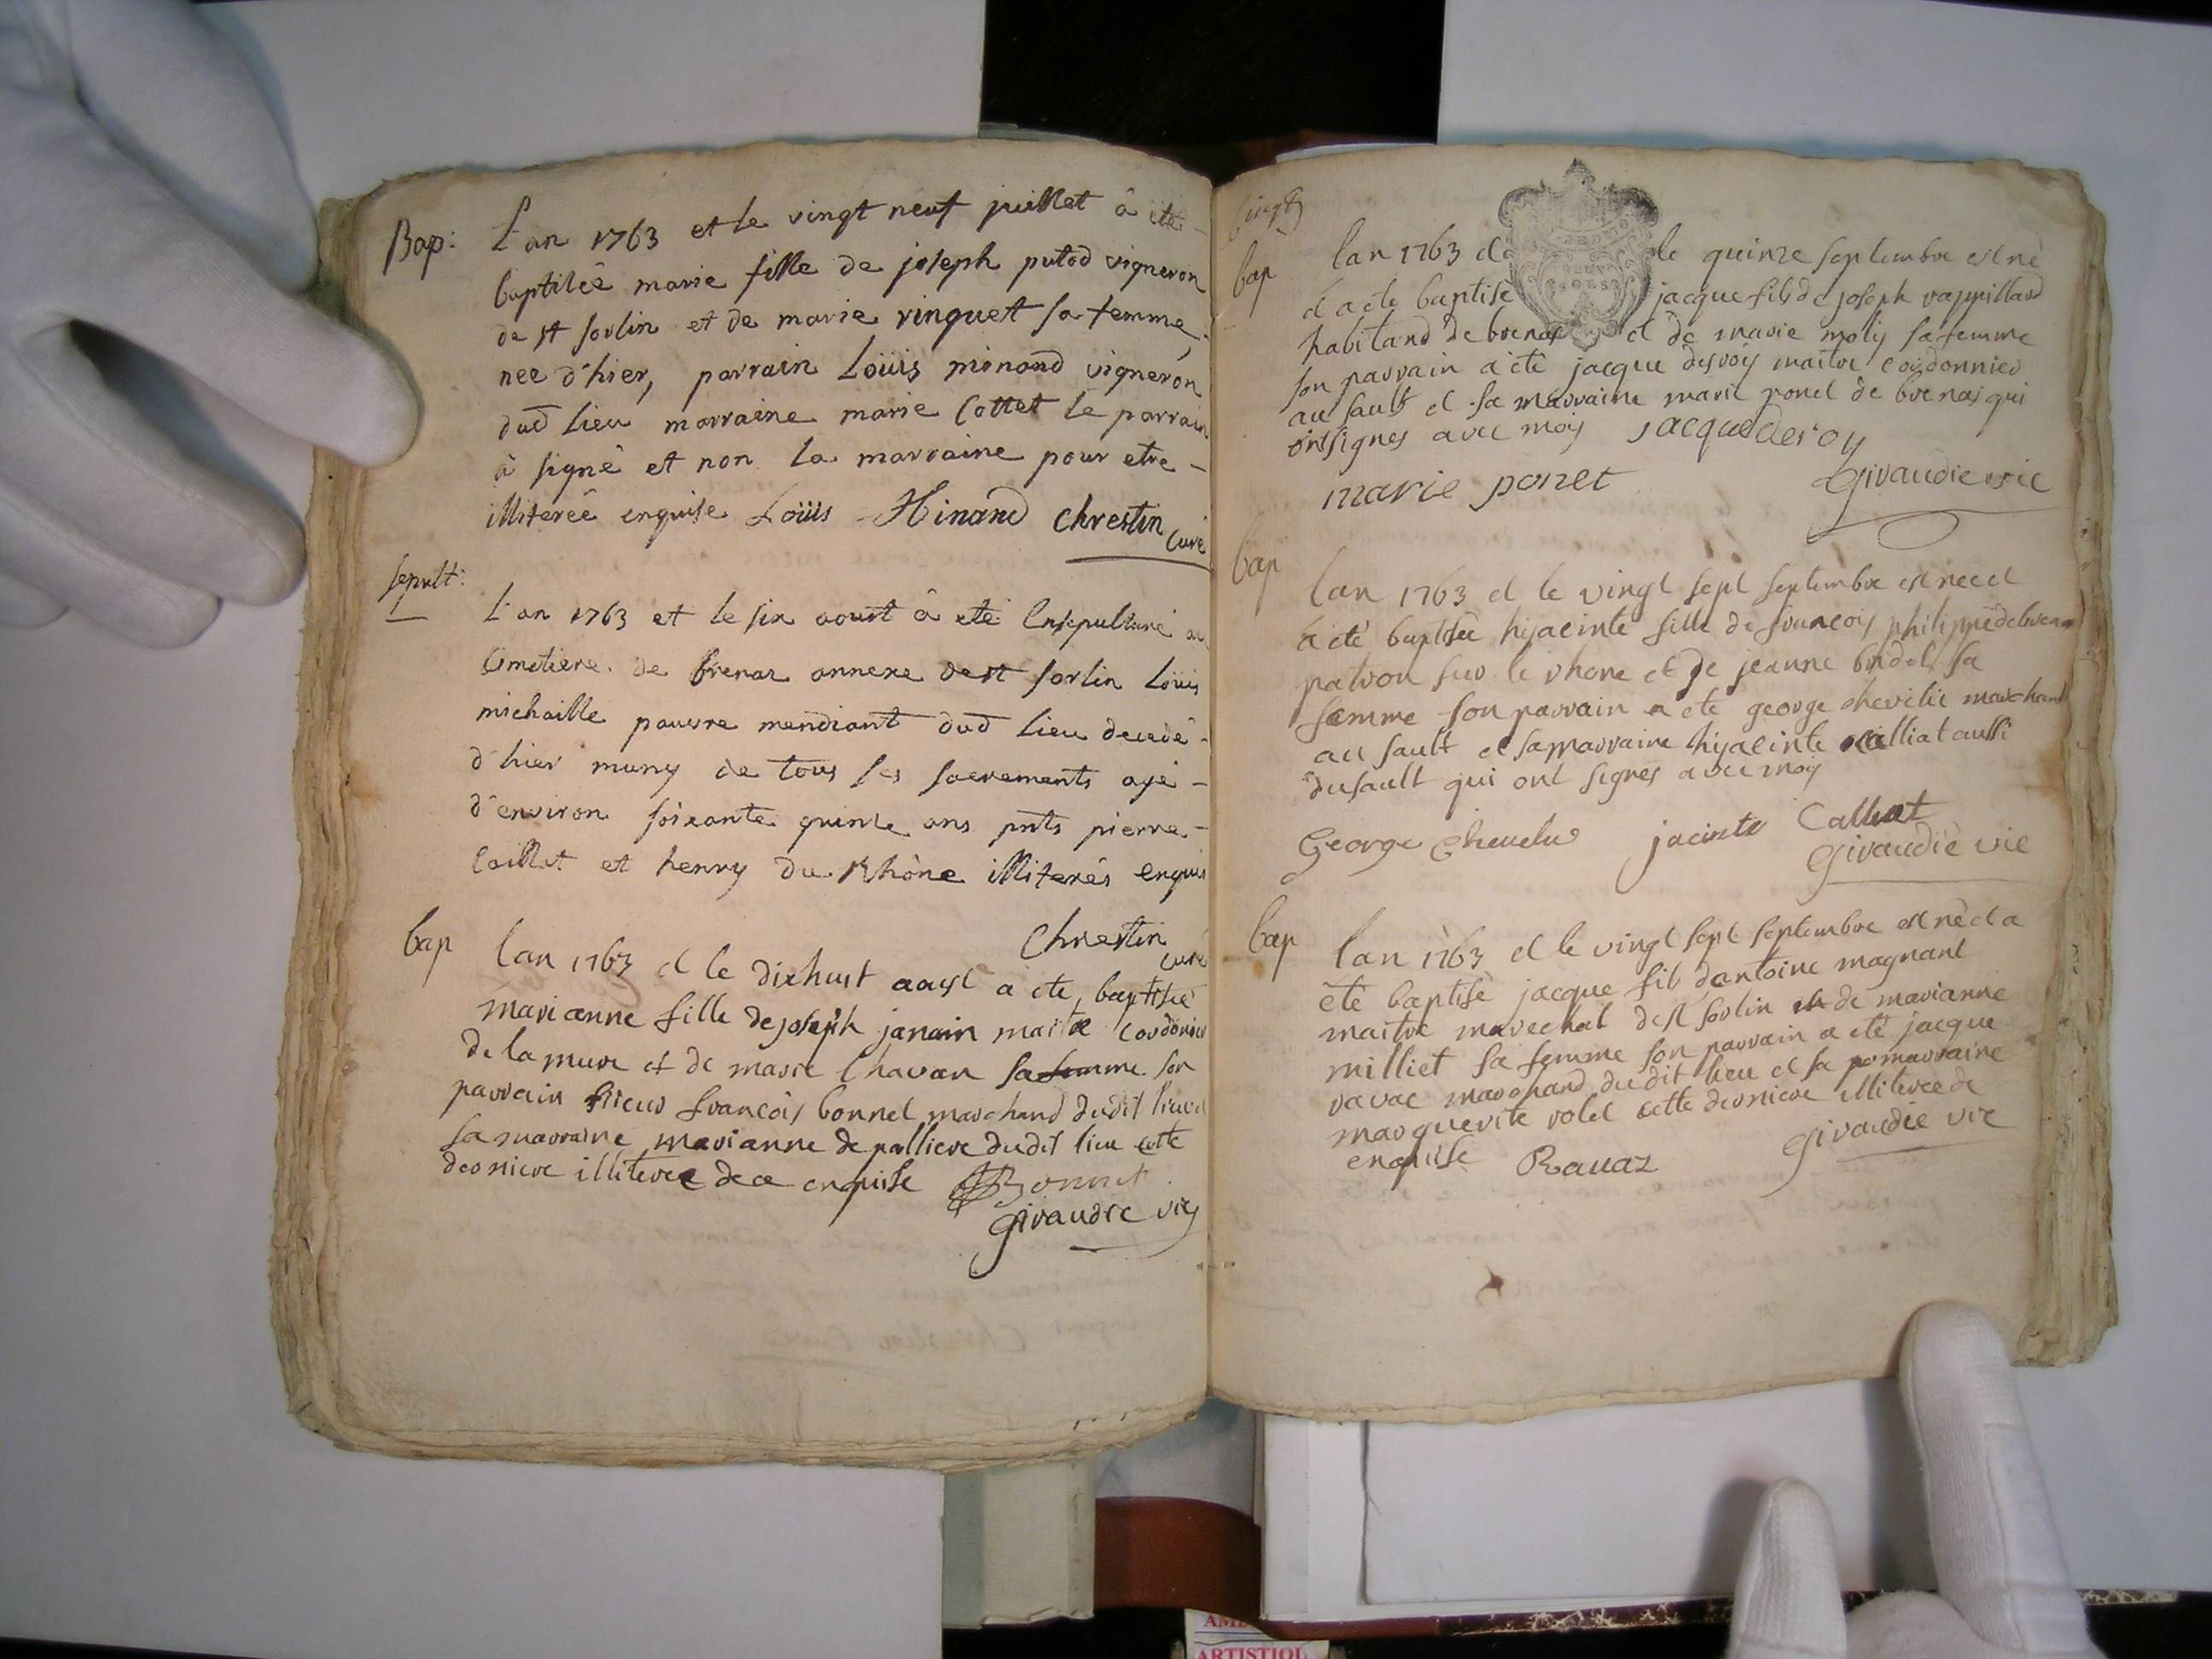 Bap: L'an 1763 et le vingt neuf juillet â ete
baptiseê marie fille de joseph putod vigneron
de st sorlin et de marie vinquet sa femme
nee d'hier, parrain Loüis minand vigneron
dud lieu marraine marie Cottet le parrain
à signé et non la marraine pour etre
illitereé enquise Loüis Hinand Chrestin
Curé
sepult:
L'an 1763 et le six aoust â eté Ensepulturé au
Cimetiere de brenaz annexe de st sorlin Loüis
michaille pauvre mendiant dud lieu decedé
d'hier muny de tous les sacrements agé
d'environ soixante quinze ans pnts pierre
Caillet et henry du Rhône illiterés enquis
Chrestin
curé
bap lan 1763 et le dixhuit aoust a ete baptisée
marianne fille de joseph janain maitre Cordonier
de la mure et de marie Chavan sa femme son
parrain sieur françois bonnet marchand dudit lieu et
sa marraine marianne de palliere dudit lieu cette
derniere illiteree de ce enquise Bonnet
Giraudie vic
vingt
bap lan 1763 et le quinze septembre est né
et a ete baptisé jacque fils de joseph vappillard
habitand de brenas et de marie moly sa femme
son parrain a été jacque desroy maitre cordonnier
au sault et sa marraine marie ponet de brenas qui
ont signes avec moy jacque deroy
marie ponet Giraudie vic
bap
lan 1763 et le vingt sept septembre est nee et
a eté baptisée hijacinte fille de françois philippe de brenas
patron sur le rhone et de jeanne bridet sa
femme son parrain a ete george chevelu marchand
au sault et sa marraine hijacinte calliat aussi
du sault qui ont signes avec moy
George Chevelu jacinte Calliat
Giraudié vic
bap lan 1763 et le vingt sept septembre est né et a
été baptisé jacque fils dantoine magnant
maitre marechal de st sorlin et de marianne
milliet sa femme son parrain a eté jacque
ravac marchand du dit lieu et sa marraine
marguerite rolet cette derniere illiteree de
enquise Ravaz Giraudie vic
AM
ARTISTIQ